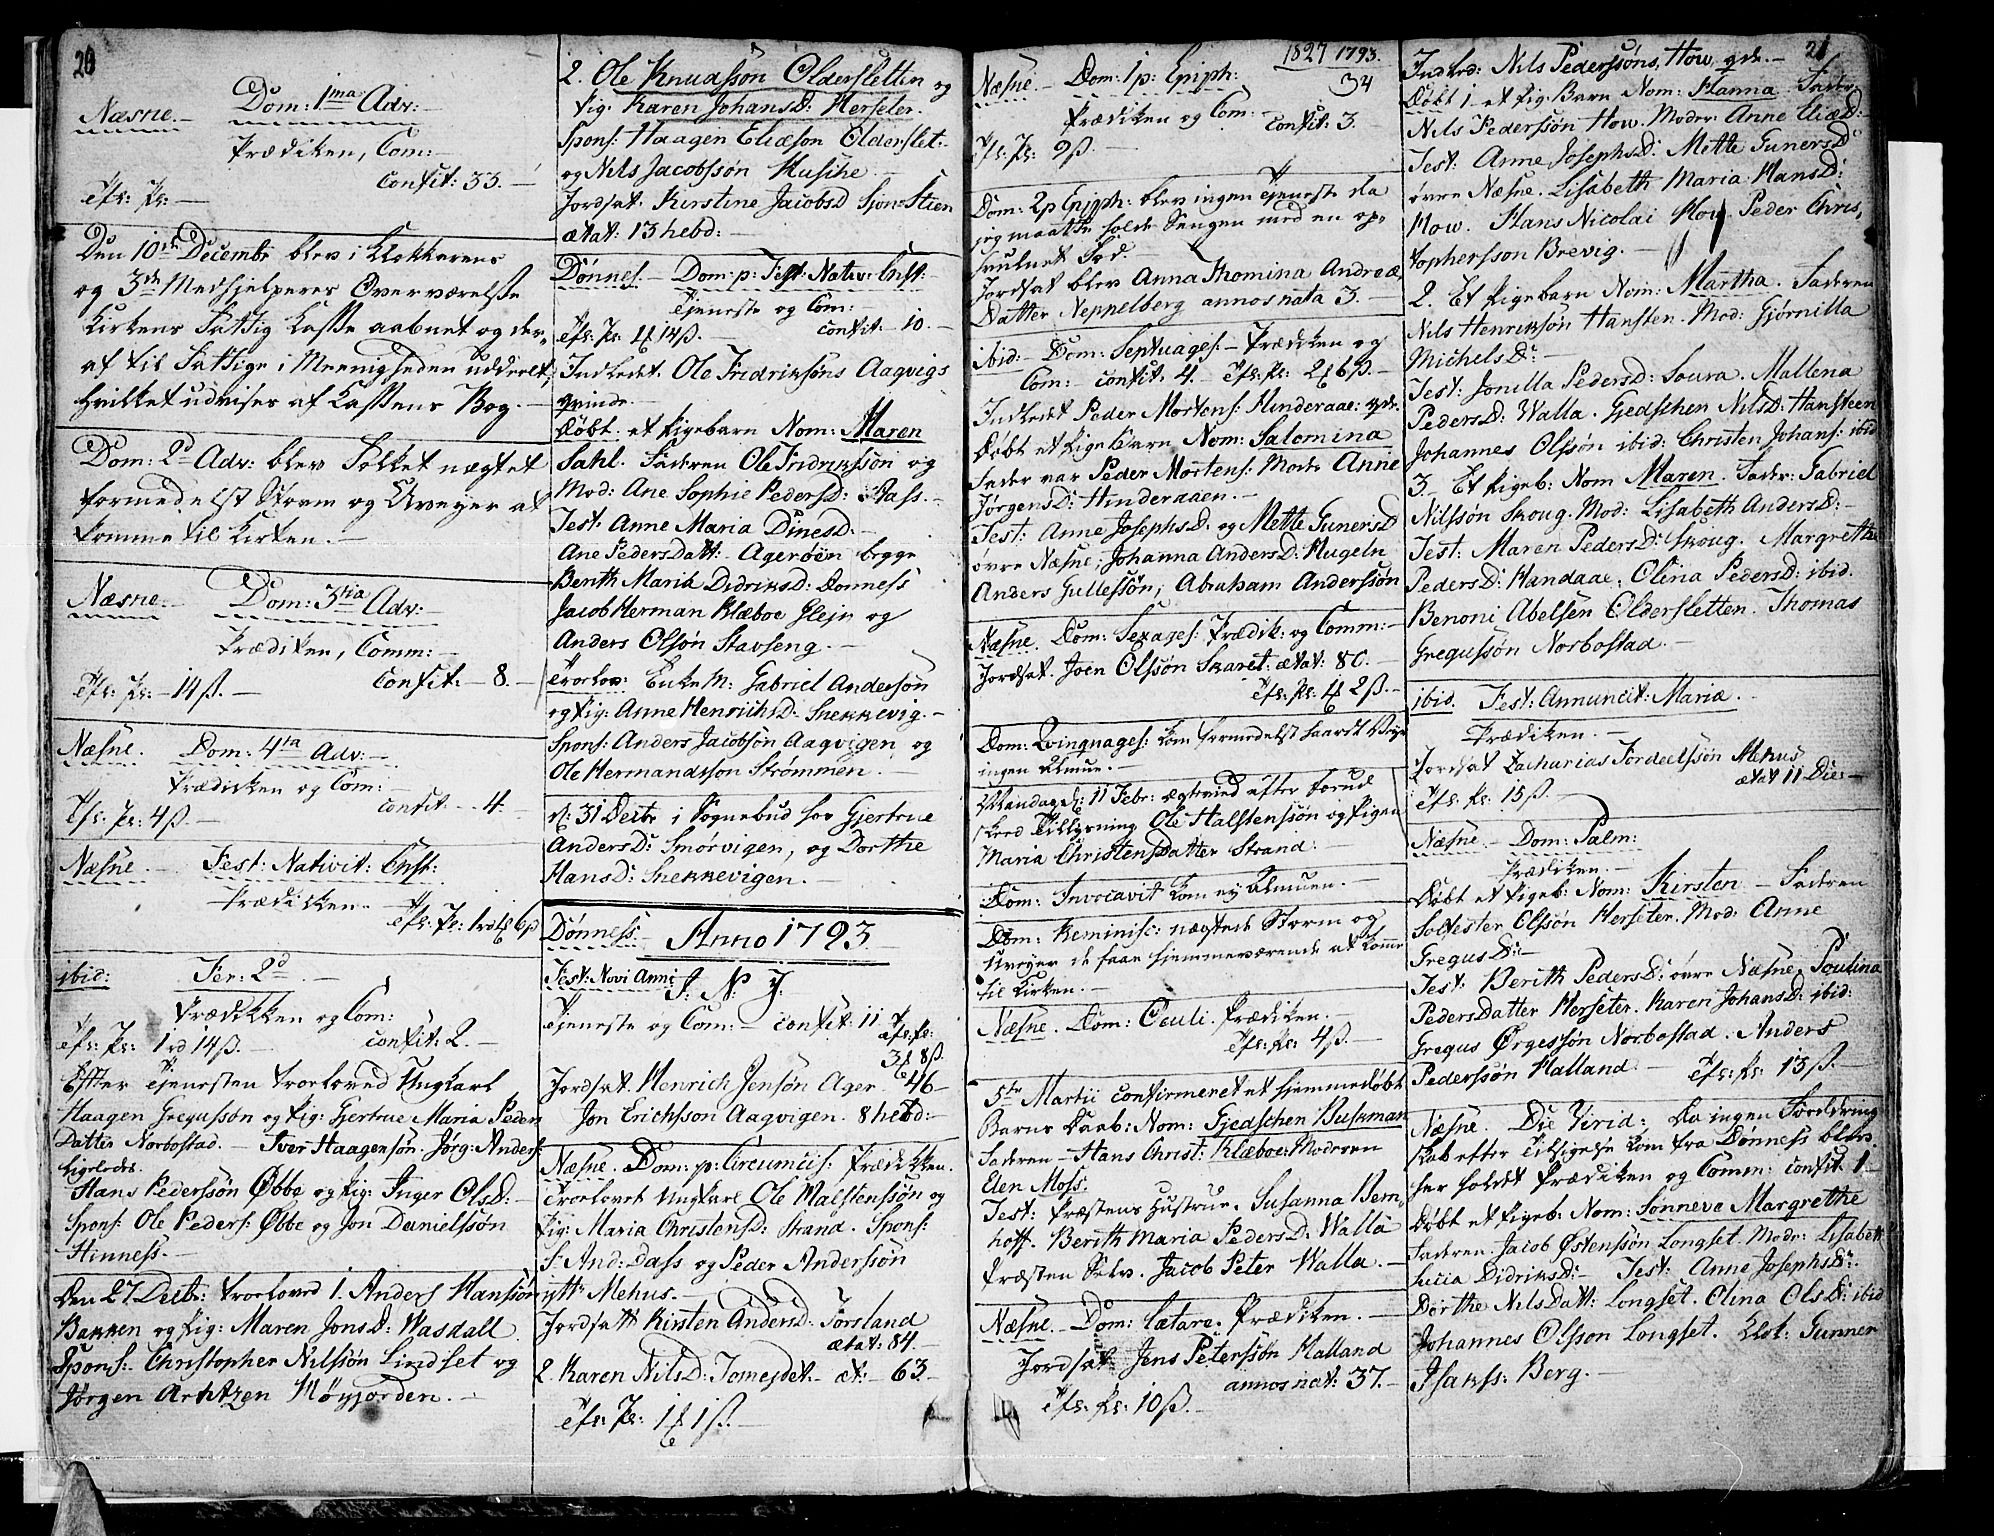 20
Næsne. Dom: 1ma Adv:
Prædiken, Com:
Confit: 33.
Tfl: Pr:
Den 10de Decembr blev i Klokkerens
og 3de Medhjelperes Overværelse
Kirkens Fattig Kasse aabnet og der„
af til Fattige i Menigheden uddeelt,
hvilket udvises af Kassens Bog.
Dom: 2d Adv: blev Folket nægtet
formedelst Storm og Uveyer at
komme til Kirken.
Næsne. Dom: 3tia Adv:
Prædiken, Comm:
Tfl: Pr: 14ß. Confit: 8.
Næsne. Dom: 4ta Adv:
Prædicken og Com:
Tfl: Pr: 4ß confit: 4.
Næsne. Fest: Nativit: Chst:
Prædicken.
Tfl: Pr: 1rd 6ß
ibid: Fer: 2d
Prædikken og Com:
Tfl: Pr: 1rd 14ß. confit: 2.
Efter Tjenesten troeloved Ungkarl
Haagen Gregusson og Pig: Gjertrue Maria Peder
Datter Norbostad. Iver Haagensøn. Jørg: Anders:
ligeledes
Hans Pederssøn Øbbe og Pig: Inger OlsD:
Spons: Ole Peders: Øbbe og Jon Danielssøn
Hinness.
Den 27 Decbr: troeloved 1. Anders Hansson
Bakken og Pig: Maren JonsD: Wasdall
Spons: Christopher Nilssøn Lindset og
Jørgen Arntzen Høyjorden.
2. Ole Knudssøn Oldersletten og
Pig: Karen JohansD: Herseter.
Spons: Haagen Eliæson Olderslet:
og Nils Jacobssøn Husche.
Jordsat Kirstine Jacobsd Sjon: Stien
ætat: 13 hebd:
Dønnes. Dom: p: Fest: Nativ: Chst:
Tjeneste og Com:
Tfl: Pr 14ß. confit: 10.
Indledet Ole Fridriksøns Aagvigs
qvinde.
Døbt et Pigebarn Nom: Maren
Sahl. Faderen Ole Fridrikssøn og
Mod: Ane Sophie Pedersd: Dass.
Test: Anne Maria Dinesd.
Ane Pedersdatt: Agerøen begge
Benth Maria Didriksd: Dønness
Jacob Herman Klæboe Glejn og
Anders Olsøn Stavseng.
Troelov: Enke M: Gabriel Andersøn
og Pig: Anne Henrichsd. Snekkevig.
Spons: Anders Jacobsøn Aagvigen og
Ole Hermandsson Strømmen.
d: 31 Decbr i Sognebud hos Gjertrue
AndersD: Smørvigen, og Dorthe
HansD: Snekkevigen.
Dønness. Anno 1793.
Fest: Novi Anni J: N: J.
Tjeneste og Com: confit: 11 Tfl: Pr:
3 8ß.
Jordsat. Henrich Jensøn Ager 46
Jon Erichsson Aagvigen. 8 hebd:
Næsne. Dom: p: Circumcis: Prædikken.
Troelovet Ungkarl Ole Halstenssøn og
Pig: Maria ChristensD: Strand. Spons:
S: And: Dass og Peder Anderssøn
ytr: Mehus.
Jordsatt Kirsten Andersd: Forsland
ætat: 84.
2. Karen NilsD: Tomesdet. æt: 63.
Tfl: Pr: 1 1ß.
1827 1793.
34
Næsne Dom: 1 p: Epiph:
Prædiken og Com:
confit: 3.
Tfl: Pr: 9ß.
Dom: 2 p Epiph: blev ingen Tjeneste da
jeg maatte holde Sengen med en op„
svulnet Fod.
Jordsat blev Anna Thomina Andreæ
Datter Neppelberg annos nata 3.
ibid: Dom: Septuages: Prædiken og
Com: confit: 4. Tfl: Pr: 2 6ß.
Indledet Peder Mortens: Hinderaae: qvde.
Døbt et Pigebarn Nom: Salomina
Fader var Peder Mortens: Modr Anne
JørgensD: Hinderaaen.
Test: Anne JosephsD. og Mette GunersD
øvre Næsne, Johanna AndersD: Hugeln
Anders Gullessøn, Abraham Anderssøn
Næsne. Dom: Sexages: Prædik: og Comm:
Jordsat. Joen Olssøn Skaret. ætat: 80.
Tfl: Pr: 2ß.
Dom: Qvinquages: kom formedelst haardt Veyr
ingen Almue.
Mandag d: 11 Febr: ægtevied efter forud
skeed Tillysning Ole Halstenssøn og Pigen
Maria ChristensDatter Strand.
Dom: Invocavit kom ey Almuen.
Dom: Reminisc: nægtede Storm og
Uveyer de faae hjemmeværende at komme
til Kirken.
Næsne. Dom: Oculi. Prædiken.
Tfl: Pr: 4ß.
5te Martii confirmeret et hjemmedøbt
Barns Daab: Nom: Gjedschen Buskman
Faderen Hans Christ: Klæboe. Moderen
Elen Moss.
Test: Præstens Hustrue. Susanna Bern„
hoff. Berith Maria PedersD: Walla
Præsten Selv. Jacob Peter Walla.
Næsne. Dom: Lætare. Prædiken.
Jordsat Jens Peterssøn Halland
annos nat: 37.
Tfl: Pr: 10ß.
21
Indled: Nils Pederssøns, How, qde.
Døbt 1. et Pig: Barn Nom: Hanna. Fader:
Nils Pederssøn How. Moder Anne EliæD:
Test: Anne JosephsD: Mette GunersD:
øvre Næsne. Lisabeth Maria HansD:
How. Hans Nicolai How. Peder Chris„
tophersson Brevig.
2. Et Pigebarn Nom: Martha. Faderen
Nils Henriksøn Hansten. Mod: Gjørnilla
MichelsD:
Test: Jonilla PedersD: Soura. Mallena
PedersD: Walla. Gjedschen NilsD: Hansteen
Johannes Olssøn ibid: Christen Johans: ibid
3. Et Pigeb: Nom Maren. Fader: Gabriel
Nilssøn Skoug. Mod: Lisabeth AndersD:
Test: Maren PedersD: Skoug. Margrethe
PedersD: Handaae. Olina PedersD: ibid.
Benoni Abelsen Oldersletten. Thomas
Gregussøn Norbostad.
ibid. Fest: Annuncit: Mariæ.
Prædiken.
Jordsat Zacharias Fordeelssøn Mehus
ætat 11 Die:
Tfl: Pr: 15ß.
Næsne. Dom: Palm:
Prædiken.
Døbt et Pigeb: Nom: Kirsten. Faderen
Solfester Olssøn Herseter. Mod: Anne
GregusD:
Test: Berith PedersD: øvre Næsne. Poulina
PedersDatter Herseter. Karen JohansD: ibid:
Gregus Ørgessøn Norbostad. Anders
Pederssøn Halland. Tfl: Pr: 13ß.
Næsne. Die Virid: Da ingen Foreldring
skab efter Tilsigelse kom fra Dønness blev
her holdt Prædiken og Comm: confit: 1.
Døbt et Pigeb: Nom: Sonneva Margrethe
Faderen. Jacob Østenssøn Longset. Modr: Lisabeth
Lucia DidriksD: Test: Anne JosephsD:
Dorthe NilsDatt: Longset. Olina OlsD: ibid
Johannes Olsson Longset. Klok: Gunner
Isakss: Berg.